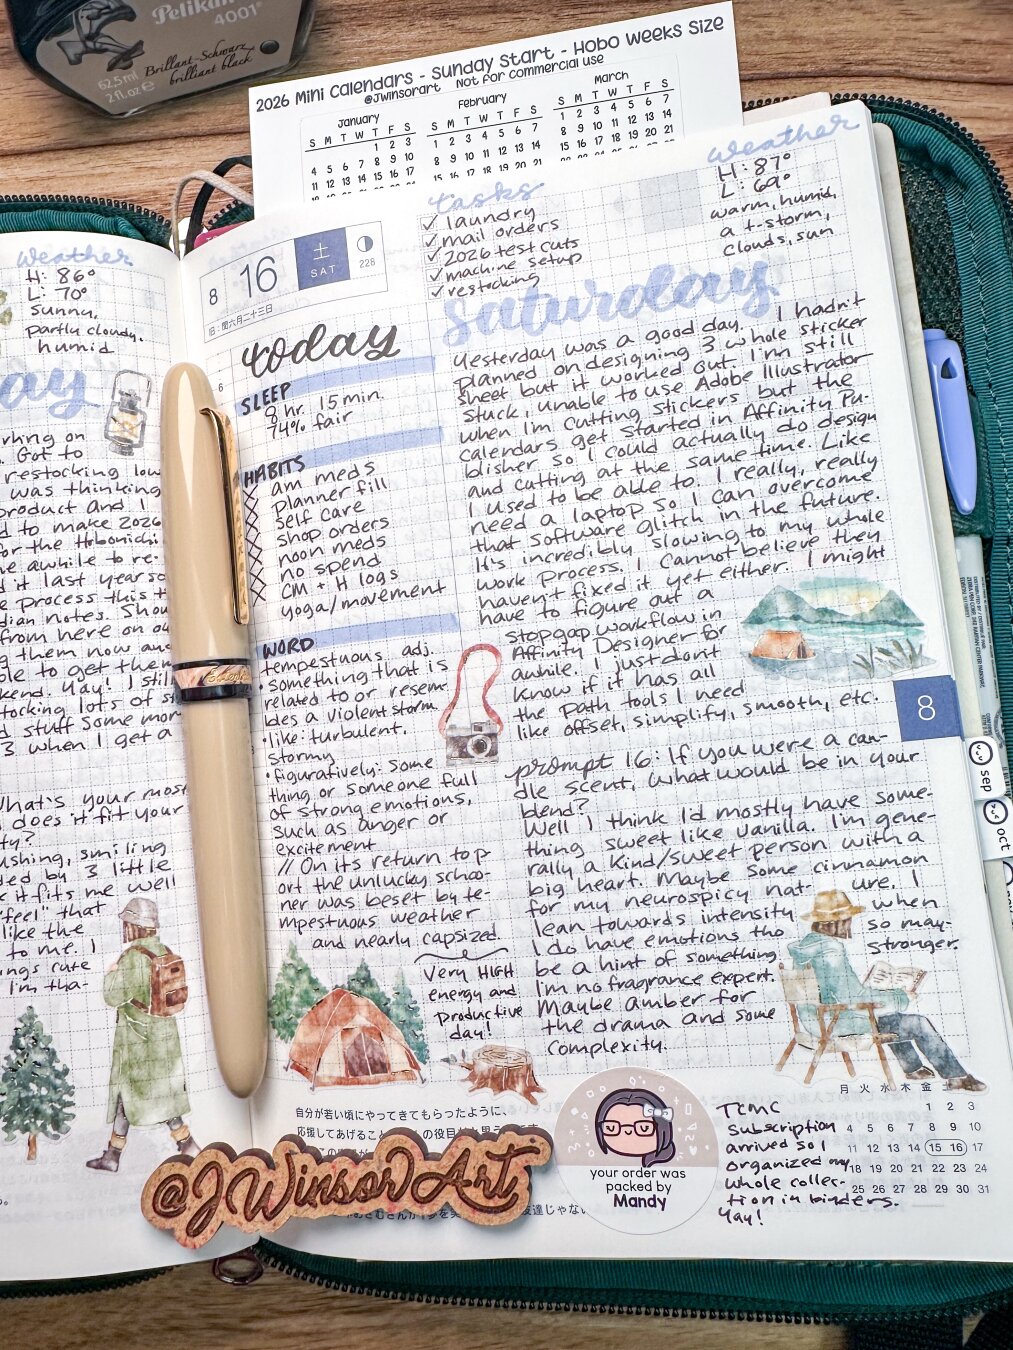 Pelikan
4001
Brillant-Schwarz
brilliant black
62,5 ml
2 fl.oz
2026 Mini Calendars - Sunday Start - Hobo Weeks Size
@Jwinsorart Not for commercial use
January February March
S M T W T F S
1 2 3
4 5 6 7 8 9 10
11 12 13 14 15 16 17
S M T W T F S
1 2 3 4 5 6 7
8 9 10 11 12 13 14
15 16 17 18 19 20 21
S M T W T F S
1 2 3 4 5 6 7
8 9 10 11 12 13 14
15 16 17 18 19 20 21
weather
H: 86°
L: 70°
sunny,
partly cloudy,
humid
ay
rking on
. Got to
restocking low
was thinking
product and I
d to make 2026
or the Hobonichi
e awhile to re-
d it last year so
e process this t
dian notes. Shou
from here on ou
g them now and
ble to get them
kend. Yay! I still
tocking lots of s
d stuff some mor
3 when I get a
What's your most
does it fit your
ty?
ushing, smiling
ded by 3 little
k it fits me well
"feel" that
like the
to me. I
ngs cute
I'm tha-
8 16 土 SAT 228
旧:閏六月二十三日
tasks
✓ laundry
✓ mail orders
✓ 2026 test cuts
✓ machine setup
✓ restocking
weather
H: 87°
L: 69°
warm, humid,
a t-storm,
clouds, sun
today
6
SLEEP
8 hr. 15 min.
74% fair
HABITS
am meds
planner fill
self care
shop orders
noon meds
no spend
CM + H logs
yoga/movement
WORD
tempestuous adj.
• something that is
related to or resem-
bles a violent storm
• like: turbulent,
stormy
• figuratively: some
thing or someone full
of strong emotions,
such as anger or
excitement
// On its return to p-
ort the unlucky schoo-
ner was beset by te-
mpestuous weather
and nearly capsized.
Very HIGH
energy and
productive
day!
saturday
Yesterday was a good day. I hadn't
planned on designing 3 whole sticker
sheet but it worked out. I'm still
stuck, unable to use Adobe Illustrator
when I'm cutting stickers but the
calendars get started in Affinity Pu-
blisher so I could actually do design
and cutting at the same time. Like
I used to be able to. I really, really
need a laptop so I can overcome
that software glitch in the future.
It's incredibly slowing to my whole
work process. I cannot believe they
haven't fixed it yet either. I might
have to figure out a
stopgap workflow in
Affinity Designer for
awhile. I just don't
know if it has all
the path tools I need
like offset, simplify, smooth, etc.
prompt 16: If you were a can-
dle scent, what would be in your
blend?
Well I think I'd mostly have some-
thing sweet like vanilla. I'm gene-
rally a kind/sweet person with a
big heart. Maybe some cinnamon
for my neurospicy nat- ure. I
lean towards intensity when
I do have emotions tho so may-
be a hint of something stronger.
I'm no fragrance expert.
Maybe amber for
the drama and some
complexity.
8
sep
oct
自分が若い頃にやってきてもらったように、
応援してあげること
@JWinsorArt
your order was
packed by
Mandy
TCMC
subscription
arrived so I
organized my
whole collec-
tion in binders.
Yay!
月 火 水 木 金 土
1 2 3
4 5 6 7 8 9 10
11 12 13 14 15 16 17
18 19 20 21 22 23 24
25 26 27 28 29 30 31